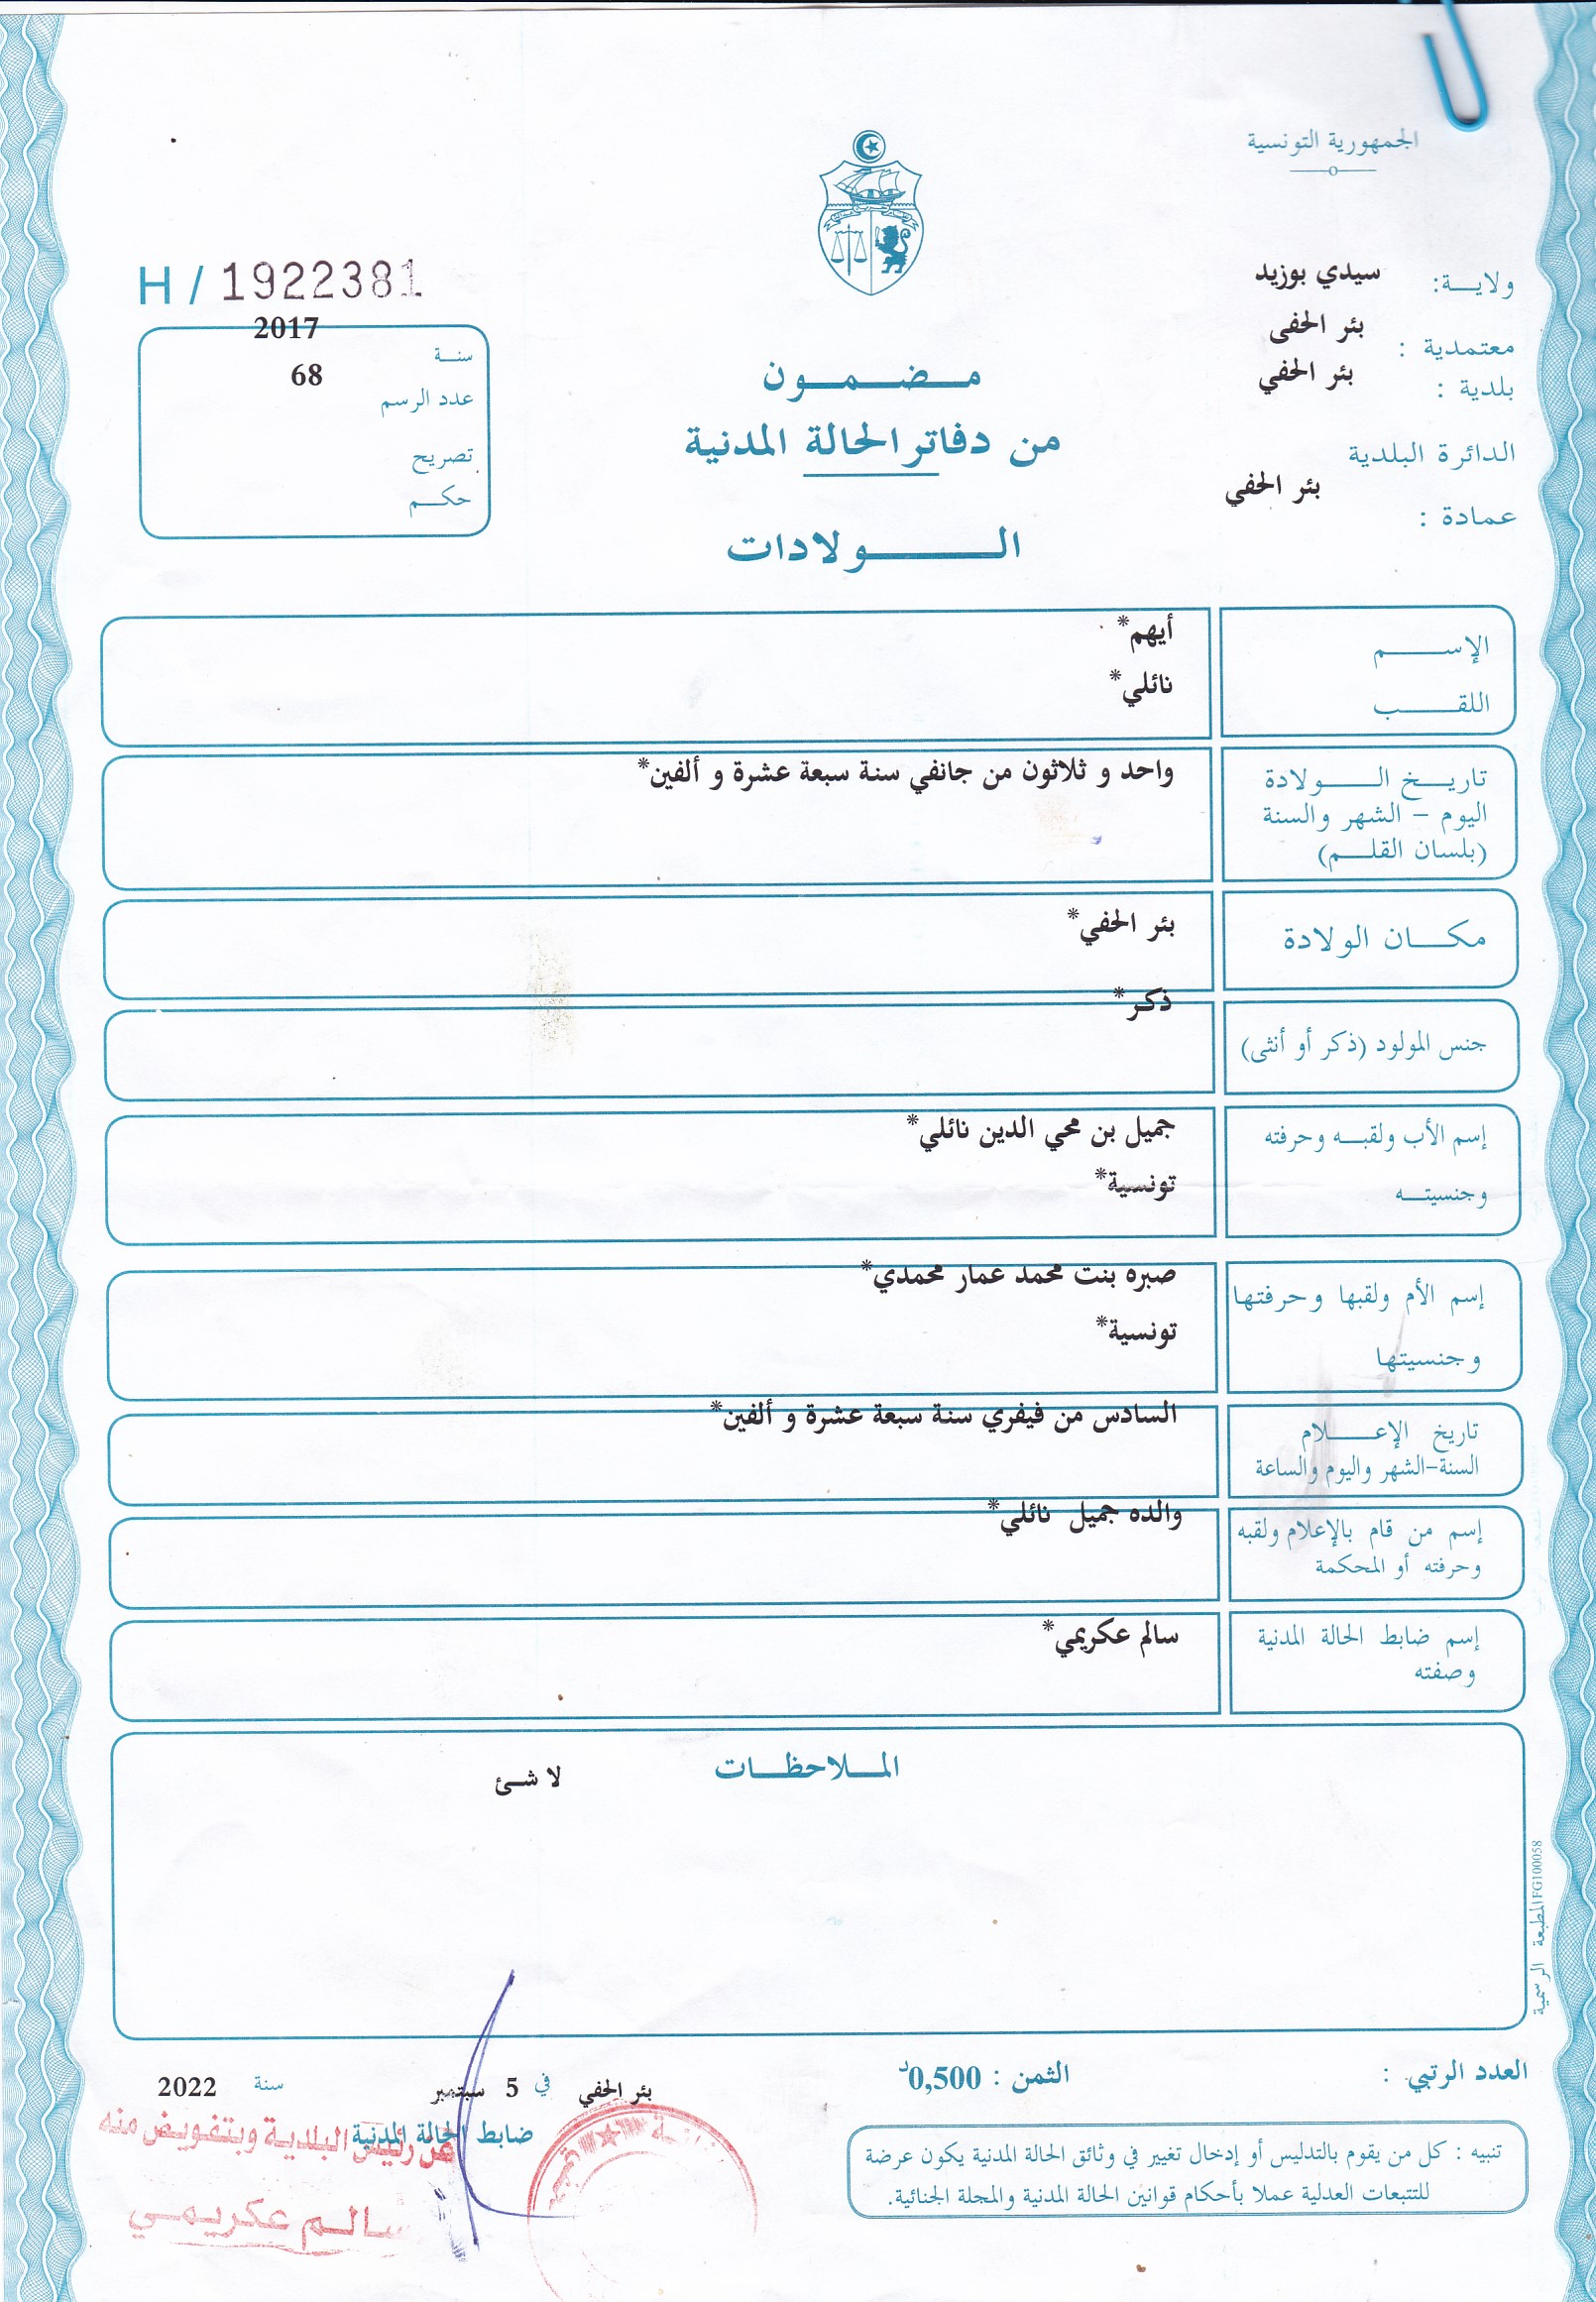 الجمهورية التونسية
ولايـــة: سيدي بوزيد
معتمدية : بئر الحفى
بلدية : بئر الحفي
الدائرة البلدية
عمادة : بئر الحفي
H / 1922381
سنـــة 2017
عدد الرسم 68
تصريح
حكـــم
مـــضـــمـــون
من دفاتر الحالة المدنية
الـــــــولادات
الإســـــــم أيهم*
اللقـــــــب نائلي*
تاريـــخ الـــــولادة واحد و ثلاثون من جانفي سنة سبعة عشرة و ألفين*
اليوم – الشهر والسنة
(بلسان القلـــم)
مكـــــان الولادة بئر الحفي*
جنس المولود (ذكر أو أنثى) ذكر*
إسم الأب ولقبـــه وحرفته جميل بن محي الدين نائلي*
وجنسيتـــه تونسية*
إسم الأم ولقبها وحرفتها صبره بنت محمد عمار محمدي*
وجنسيتها تونسية*
تاريخ الإعـــــلام السادس من فيفري سنة سبعة عشرة و ألفين*
السنة-الشهر واليوم والساعة
إسم من قام بالإعلام ولقبه والده جميل نائلي*
وحرفته أو المحكمة
إسم ضابط الحالة المدنية سالم عكريمي*
وصفته
المـــلاحظـــات
لا شئ
المطبعة الرسمية FG100058
العدد الرتبي :
الثمن : 0,500د
بئر الحفي في 5 سبتمبر سنة 2022
ضابط الحالة المدنية
عن رئيس البلدية وبتفويض منه
سالـم عكريمـي
تنبيه : كل من يقوم بالتدليس أو إدخال تغيير في وثائق الحالة المدنية يكون عرضة
للتتبعات العدلية عملا بأحكام قوانين الحالة المدنية والمجلة الجنائية.